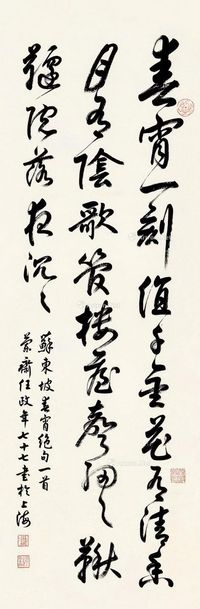 春宵一刻值千金花有清香
月有陰歌管樓臺聲細々鞦
韆院落夜沉々
蘇東坡春宵絕句一首
蘭齋任政年七十七書於上海